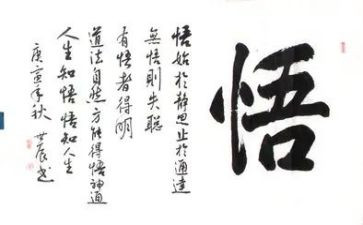 悟
悟始於静思止於通達
無悟則失聪
有悟者得明
道法自然方能得悟神通
人生知悟悟知人生
庚寅年秋 世辰书